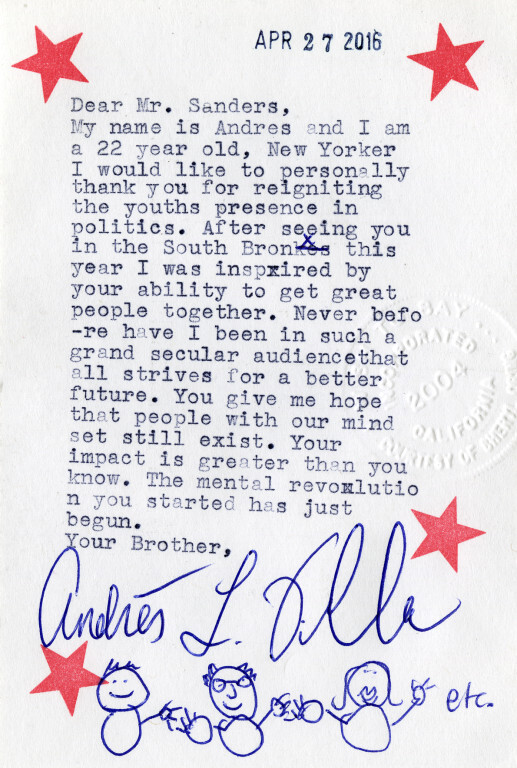 APR 27 2016
Dear Mr. Sanders,
My name is Andres and I am
a 22 year old, New Yorker
I would like to personally
thank you for reigniting
the youths presence in
politics. After seeing you
in the South Bronx this
year I was inspxired by
your ability to get great
people together. Never befo
-re have I been in such a
grand secular audiencethat
all strives for a better
future. You give me hope
that people with our mind
set still exist. Your
impact is greater than you
know. The mental revoxlutio
n you started has just
begun.
Your Brother,
Andrés L. Villa
etc.
SAY
2004
CALIFORNIA
COURTESY OF